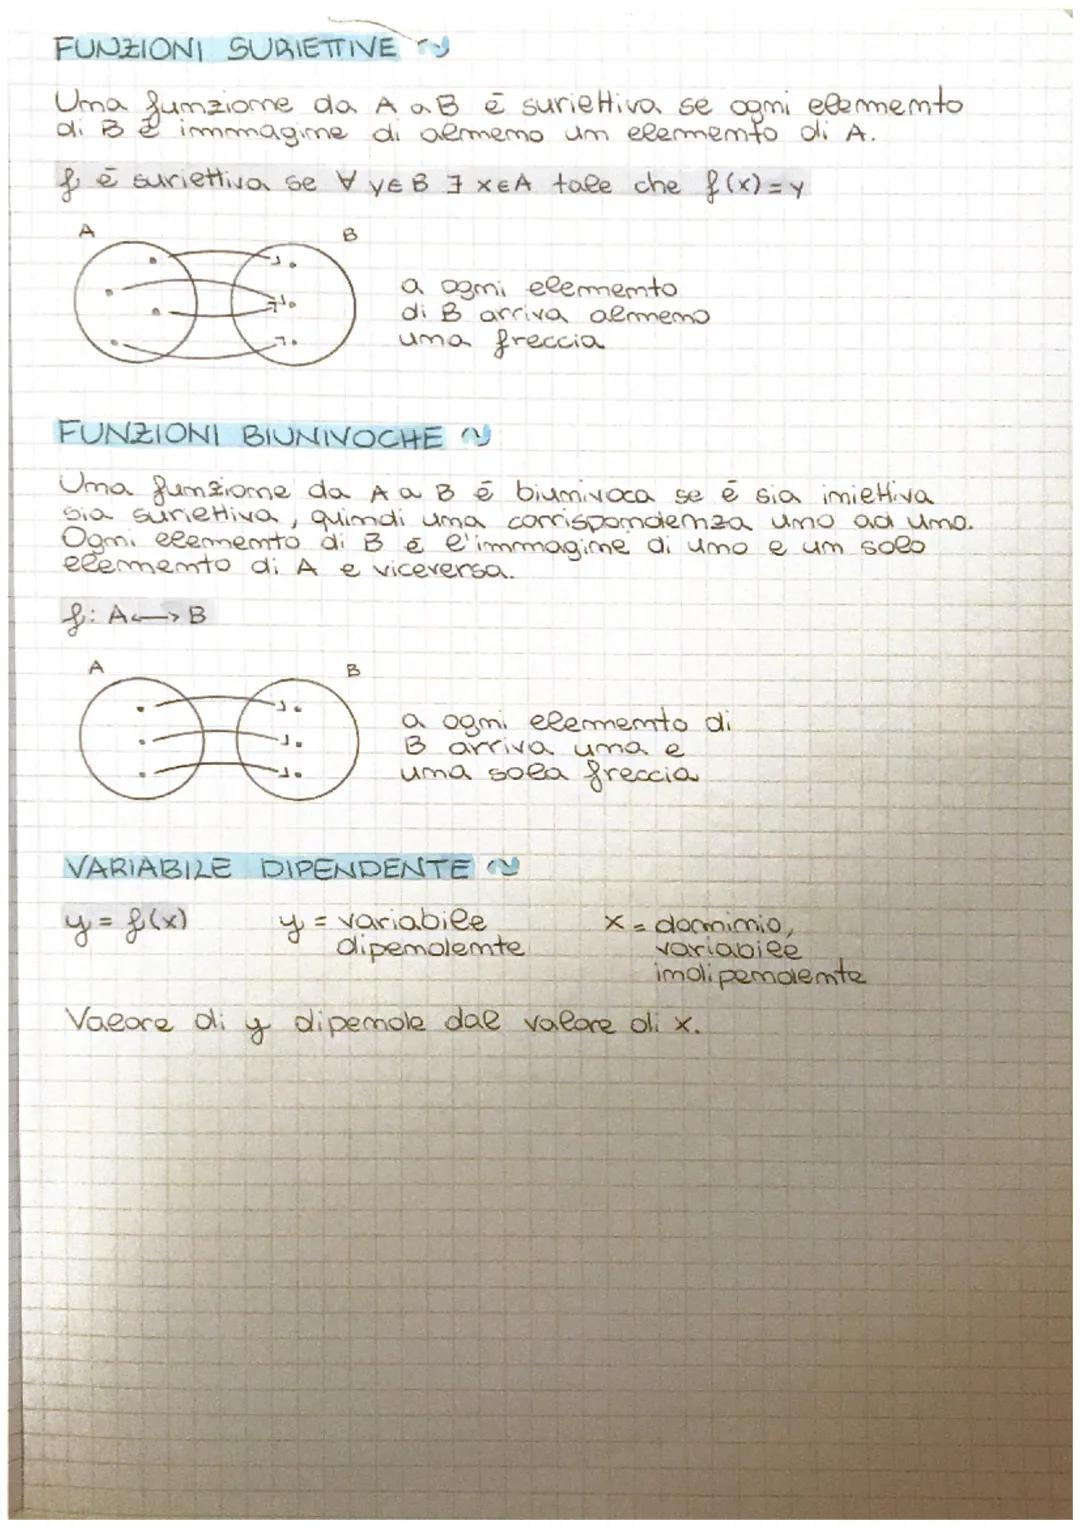 FUNZIONI SURIETTIVE
Una funzione da A a B è suriettiva se ogni elemento
di B è immagine di almeno un elemento di A.
f è suriettiva se ∀ y∈B ∃ x∈A tale che f(x)=y
A B
a ogni elemento
di B arriva almeno
una freccia
FUNZIONI BIUNIVOCHE
Una funzione da A a B è biunivoca se è sia iniettiva
sia suriettiva, quindi una corrispondenza uno ad uno.
Ogni elemento di B è l'immagine di uno e un solo
elemento di A e viceversa.
f: A ↔ B
A B
a ogni elemento di
B arriva una e
una sola freccia
VARIABILE DIPENDENTE
y = f(x) y = variabile x = dominio,
dipendente variabile
indipendente
Valore di y dipende dal valore di x.